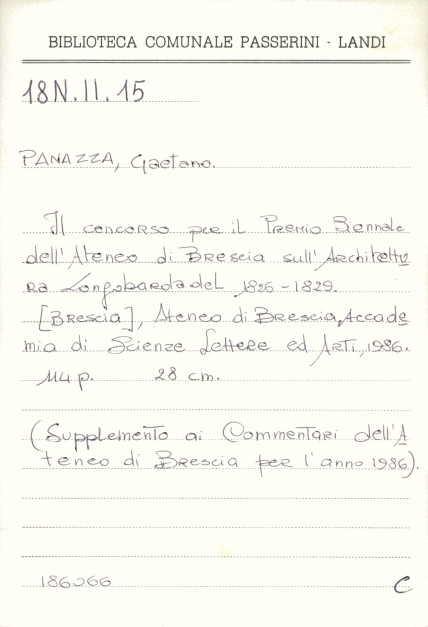 BIBLIOTECA COMUNALE PASSERINI - LANDI
18N.II.15
PANAZZA, Gaetano.
Il concorso per il Premio Biennale
dell'Ateneo di Brescia sull'Architettu
ra Longobarda del 1826-1829.
[Brescia], Ateneo di Brescia, Accade
mia di Scienze Lettere ed Arti, 1986.
114 p. 28 cm.
(Supplemento ai Commentari dell'A
teneo di Brescia per l'anno 1986).
186066
C